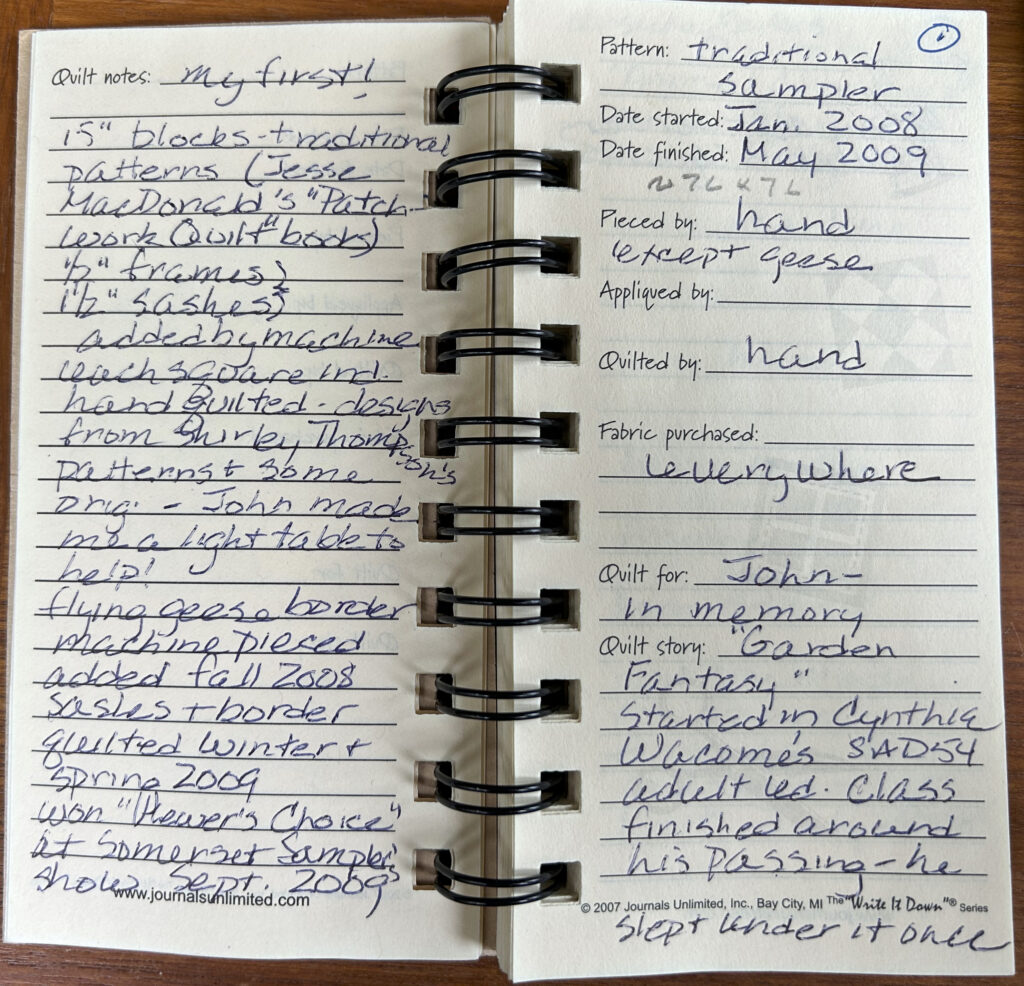 Quilt notes: My first!
15" blocks - traditional
patterns (Jesse
MacDonald's "Patch-
work Quilt" books)
1/2" frames }
1 1/2" sashes }
added by machine
each square ind.
hand quilted - designs
from Shirley Thompson's
patterns + some
orig. - John made
me a light table to
help!
flying geese border
machine pieced
added fall 2008
sashes + border
quilted winter +
spring 2009
won "Viewer's Choice"
at Somerset Sampler's
show Sept. 2009
www.journalsunlimited.com
1
Pattern: traditional
sampler
Date started: Jan. 2008
Date finished: May 2009
~ 76 x 76
Pieced by: hand
except geese
Appliqued by:
Quilted by: hand
Fabric purchased:
everywhere
Quilt for: John -
in memory
Quilt story: "Garden
Fantasy"
started in Cynthia
Wacome's SAD54
adult ed. class
finished around
his passing - he
© 2007 Journals Unlimited, Inc., Bay City, MI The "Write It Down"® Series
slept under it once